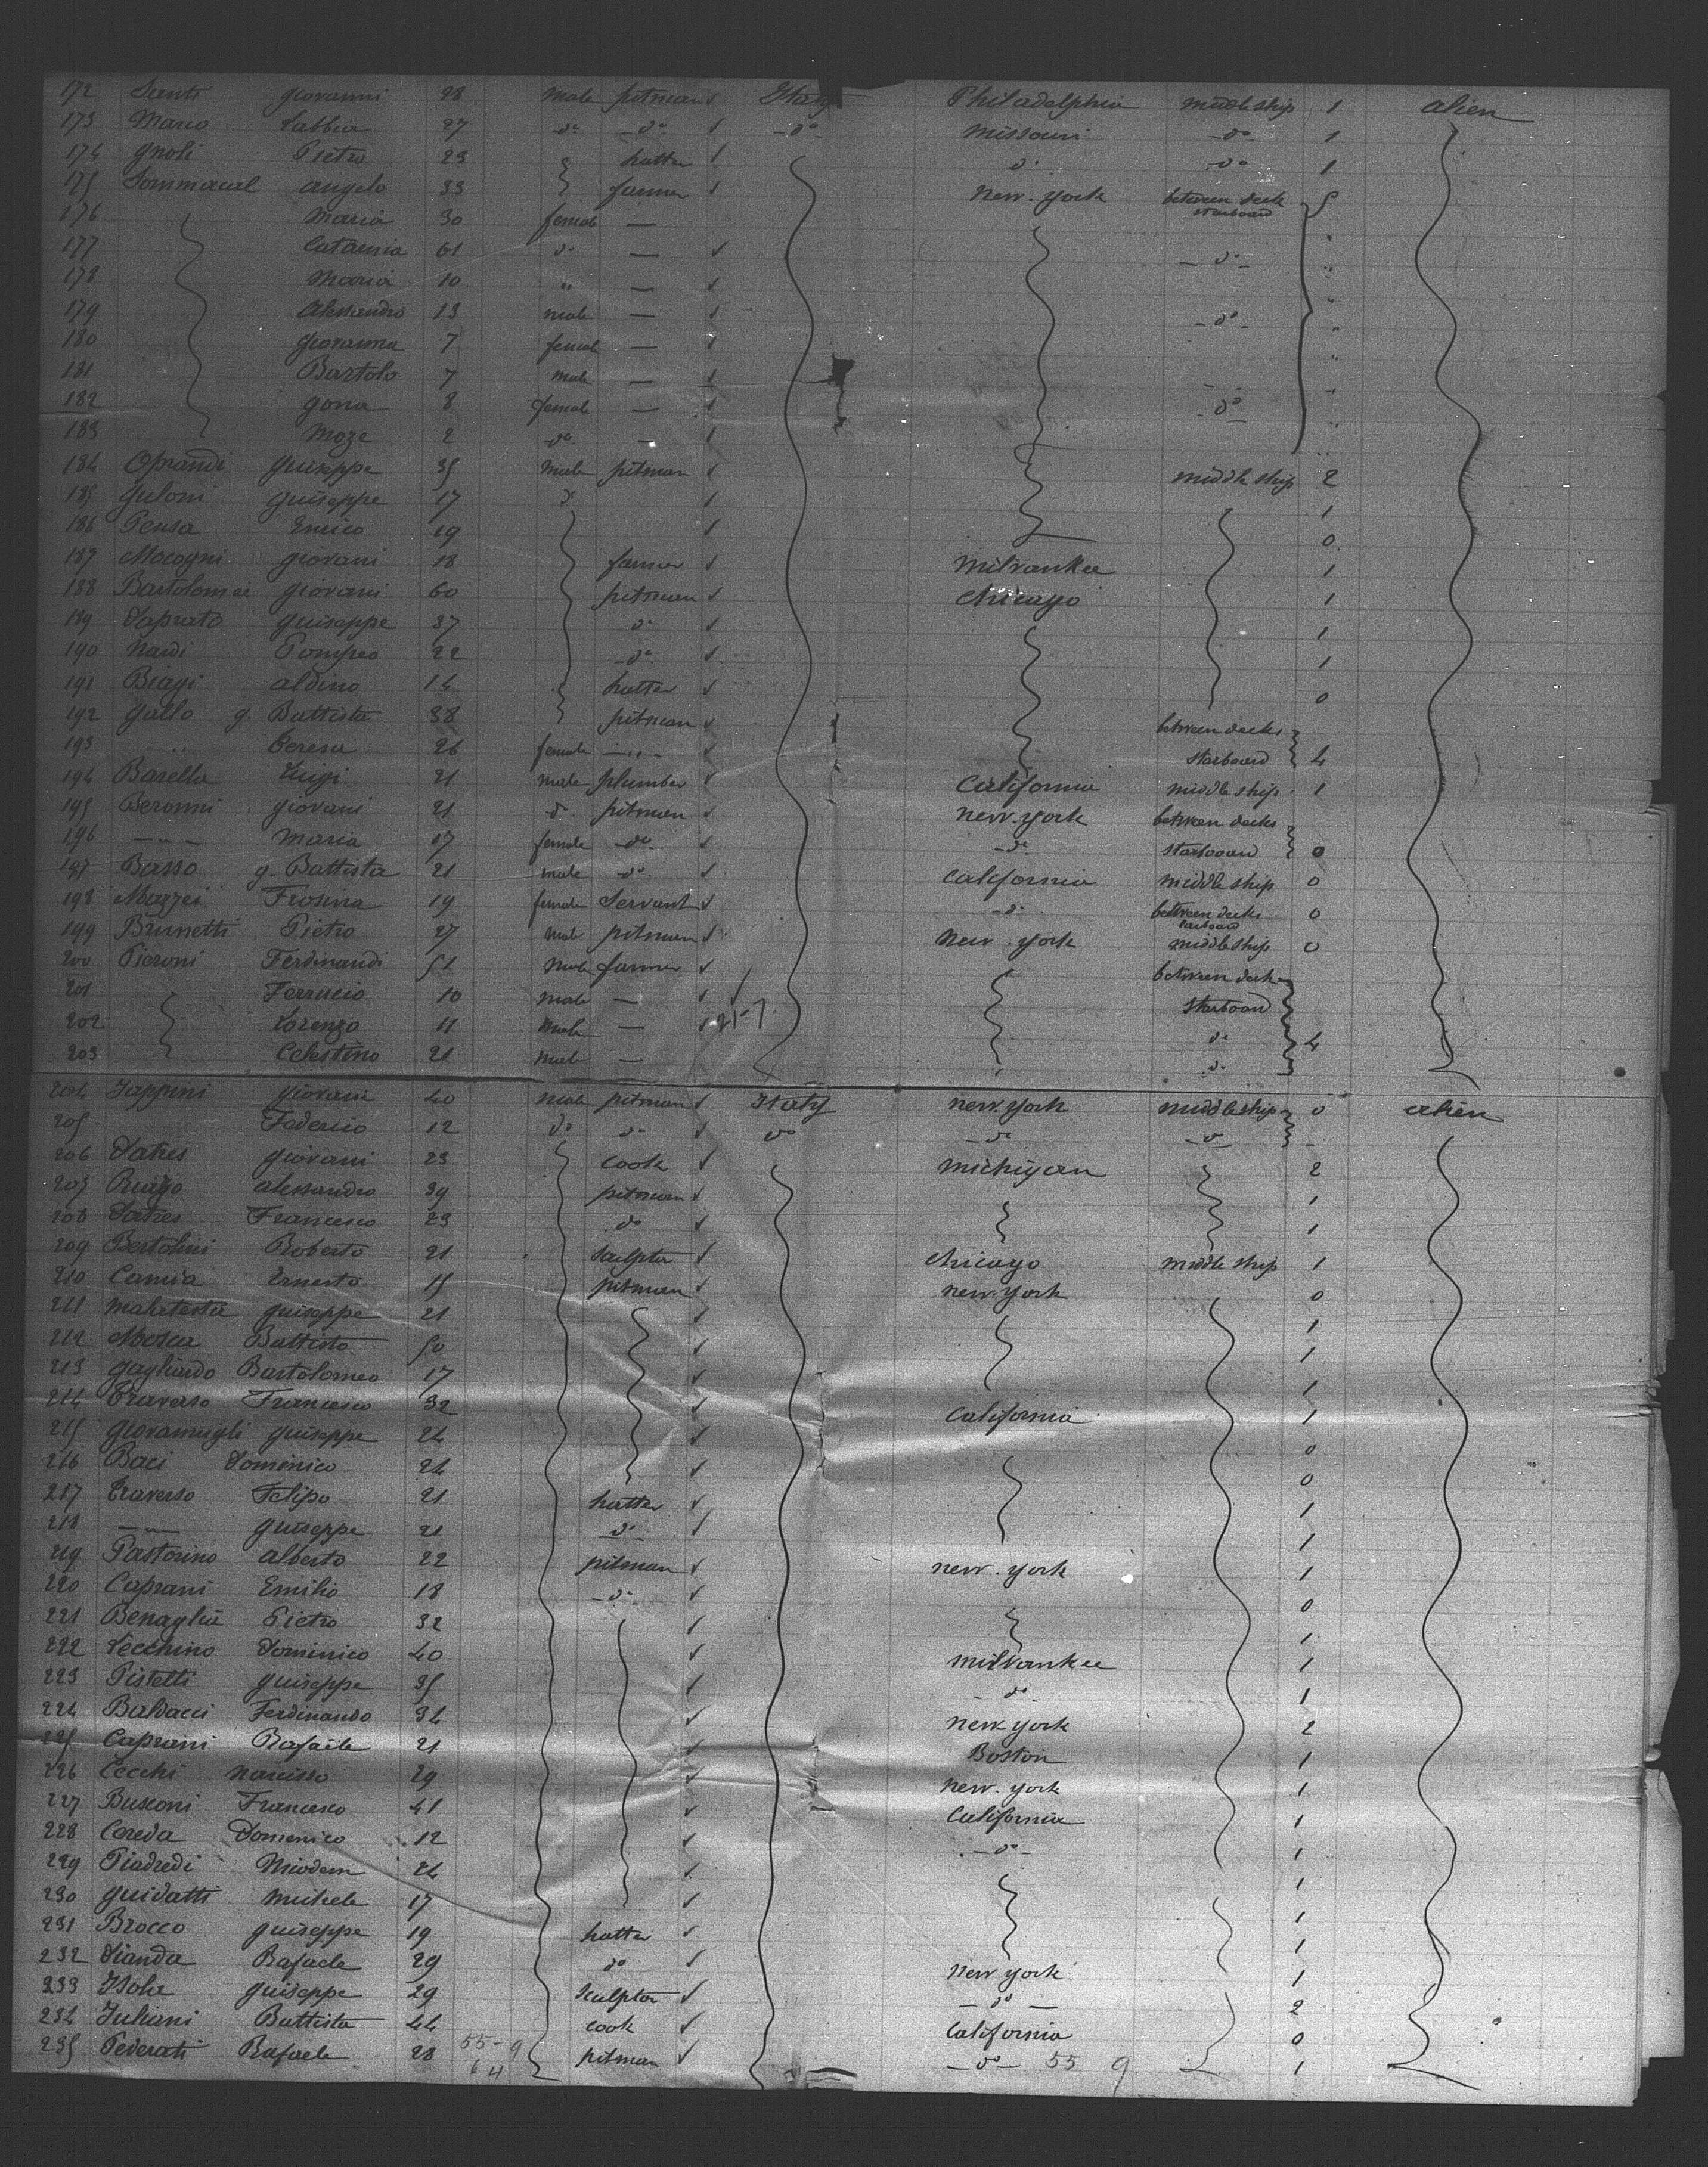 172 Santi giovanni 28 male pitman Italy Philadelphia middle ship 1 alien
173 Mario Sabbia 27 do do do missouri do 1
174 gnoli Pietro 23 hatter do do 1
175 Sommacal angelo 33 farmer new-york between deck starboard 5
176 Maria 30 female —
177 Catarina 61 do — do
178 Maria 10 " —
179 Alessandro 13 male — do
180 giovanna 7 female —
181 Bartolo 7 male —
182 gona 8 female — do
183 Moze 2 do —
184 Oprandi guiseppe 35 male pitman middle ship 2
185 guloni guiseppe 17 do 1
186 Pensa Enrico 19 0
187 Mocogni giovani 18 farmer milvankee 1
188 Bartolomei giovani 60 pitman chicago 1
189 Saprato guiseppe 37 do 1
190 Nardi Pompeo 22 do 1
191 Biagi aldino 14 hatter 0
192 gallo g. Battista 38 pitman between decks
193 " Teresa 26 female " starboard 4
194 Barella Luigi 21 male plumber California middle ship 1
195 Beronni giovani 21 do pitman new-york between decks
196 — " — maria 17 female do do starboard 0
197 Basso g. Battista 21 male do California middle ship 0
198 Mazzei Frosina 19 female Servant do between decks starboard 0
199 Brunetti Pietro 27 male pitman new york middle ship 0
200 Pieroni Ferdinando 51 male farmer between deck
201 Ferrucio 10 male — starboard
202 Lorenzo 11 male — do 4
203 Celestino 21 male — do
204 Zappini giovani 40 male pitman Italy new-york middle ship 0 alien
205 Federico 12 do do do do do
206 Satres giovani 23 cook michigan 2
207 alessandro 39 pitman 1
208 Satres Francesco 23 do 1
209 Bertolini Roberto 21 sculptor chicago middle ship 1
210 Camia Ernesto 15 pitman new-york 0
211 malatesta guiseppe 21 1
212 Mosca Battista 50 1
213 gagliardo Bartolomeo 17 1
214 Traverso Francesco 32 California 1
215 giovannigli guiseppe 24 0
216 Baci Dominico 24 0
217 Traverso Felipo 21 hatter 1
218 — " — guiseppe 21 do 1
219 Pastorino alberto 22 pitman new-york 1
220 Caprani Emilio 18 do 0
221 Benaglia Pietro 32 1
222 Secchino Dominico 40 milvankee 1
223 Pistelli guiseppe 35 do 1
224 Baldacci Ferdinando 34 new york 2
225 Caprani Rafaele 21 Boston 1
226 Cecchi narcisso 29 new-york 1
227 Busconi Francesco 41 California 1
228 Cereda Domenico 12 do 1
229 Piadredi 24 1
230 guidatti michele 17 1
231 Brocco guiseppe 19 hatter 1
232 Sianda Rafaele 29 do new york 1
233 Isola guiseppe 29 sculptor do 2
234 Juliani Battista 44 cook California 0
235 Pederati Rafaele 28 55-9 pitman do 55 9 1
64